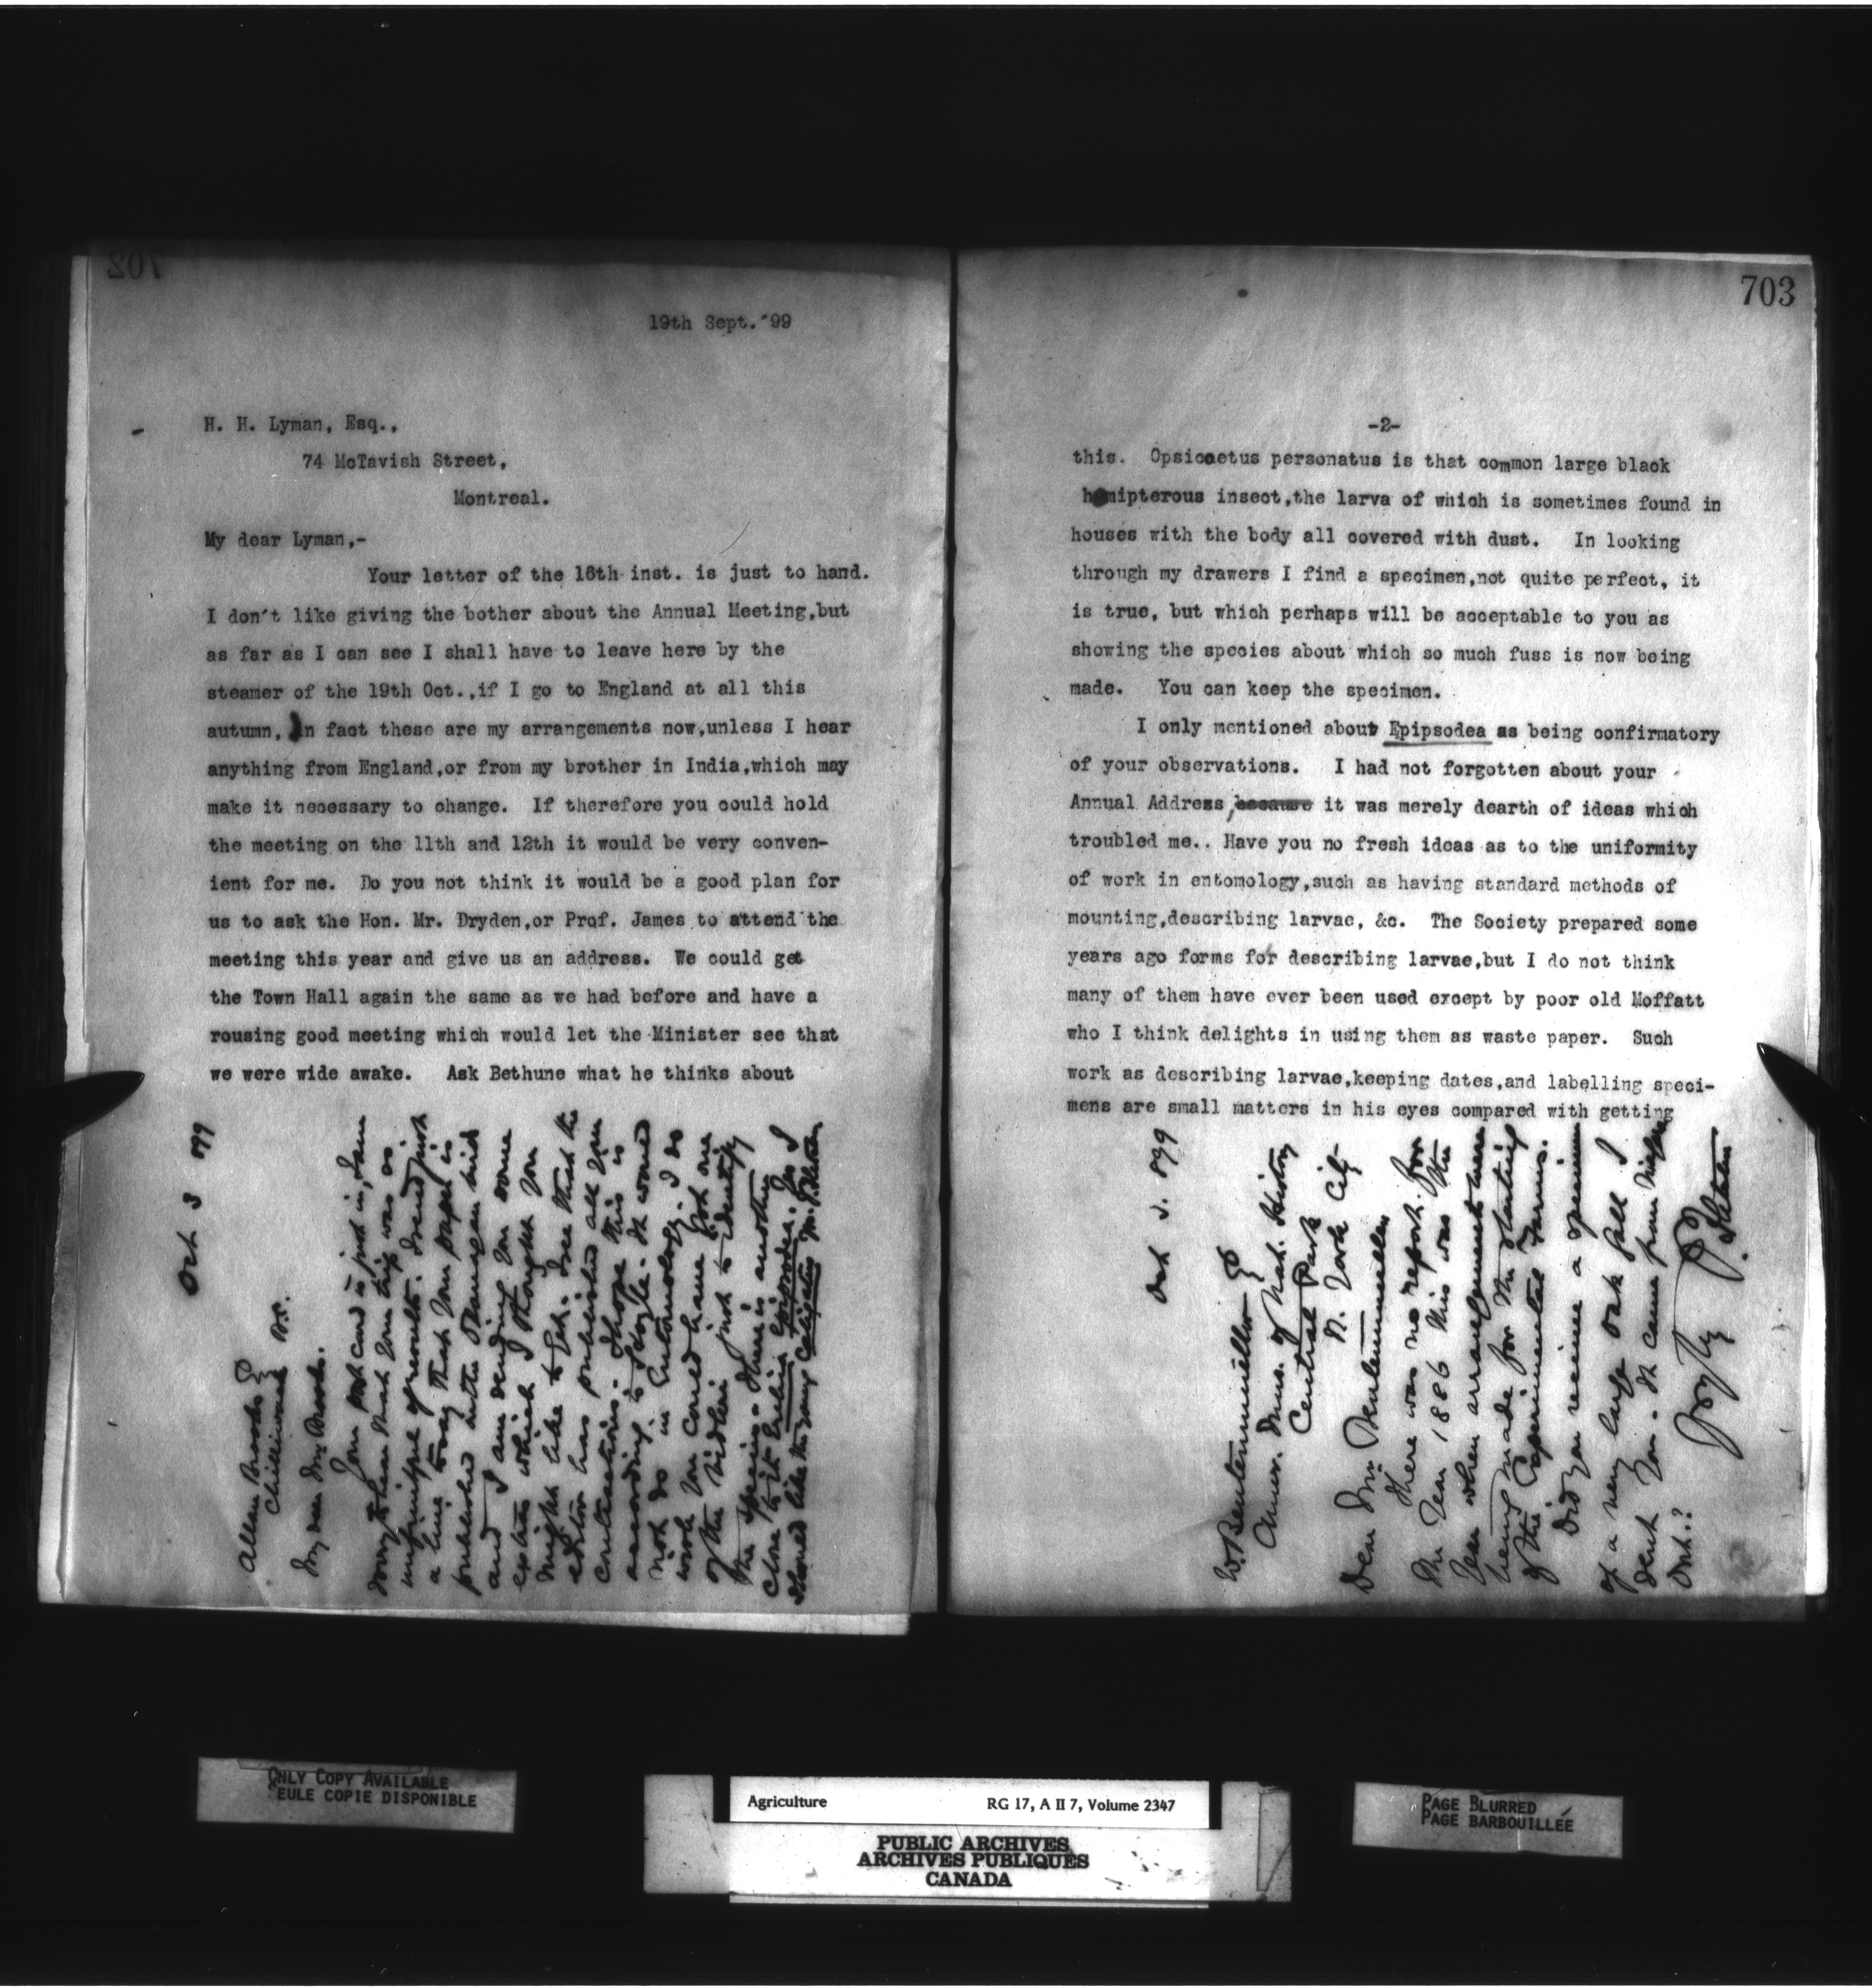 702
19th Sept. '99
H. H. Lyman, Esq.,
74 McTavish Street,
Montreal.
My dear Lyman,-
Your letter of the 16th inst. is just to hand.
I don't like giving the bother about the Annual Meeting,but
as far as I can see I shall have to leave here by the
steamer of the 19th Oct.,if I go to England at all this
autumn, In fact these are my arrangements now,unless I hear
anything from England,or from my brother in India,which may
make it necessary to change. If therefore you could hold
the meeting on the 11th and 12th it would be very conven-
ient for me. Do you not think it would be a good plan for
us to ask the Hon. Mr. Dryden,or Prof. James to attend the
meeting this year and give us an address. We could get
the Town Hall again the same as we had before and have a
rousing good meeting which would let the Minister see that
we were wide awake. Ask Bethune what he thinks about
Oct 3 '99
Allan Brooks
Chilliwack B.C.
My dear Mr. Brooks.
Your post card is just in, I am
sorry to hear that your trip was so
unfruitful of results. I send just
a line to say that your paper is
published in the Ottawa
and I am sending you some
extras which I thought you
might like to get. I see that the
editor has published all your
contractions. I hope this is
according to style. It would
not do in Entomology. I do
wish you could have got one
of the Erebias just to identify
the species. There is another
close to it Erebia Epipsodea. I
703
-2-
this. Opsicaetus personatus is that common large black
hemipterous insect,the larva of which is sometimes found in
houses with the body all covered with dust. In looking
through my drawers I find a specimen,not quite perfect, it
is true, but which perhaps will be acceptable to you as
showing the species about which so much fuss is now being
made. You can keep the specimen.
I only mentioned about Epipsodea as being confirmatory
of your observations. I had not forgotten about your
Annual Address, because it was merely dearth of ideas which
troubled me.. Have you no fresh ideas as to the uniformity
of work in entomology,such as having standard methods of
mounting,describing larvae, &c. The Society prepared some
years ago forms for describing larvae,but I do not think
many of them have ever been used except by poor old Moffatt
who I think delights in using them as waste paper. Such
work as describing larvae,keeping dates,and labelling speci-
mens are small matters in his eyes compared with getting
Oct. 3. '99
W. Beutenmuller
Amer. Mus. of Nat. History
Central Park
N. York City
Dear Mr. Beutenmuller
There was no report for
the year 1886 this was the
year when arrangements were
being made for the starting
of the Experimental Farms.
Did you receive a specimen
of a very large oak gall I
sent you. It came from
Ont.?
J. Fletcher
ONLY COPY AVAILABLE
SEULE COPIE DISPONIBLE
Agriculture RG 17, A II 7, Volume 2347
PUBLIC ARCHIVES
ARCHIVES PUBLIQUES
CANADA
PAGE BLURRED
PAGE BARBOUILLÉE